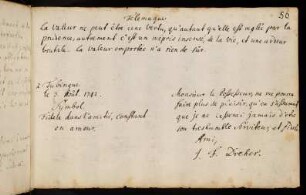 Télémaque
56
La valeur ne peut être une vertu, qu'autant qu'elle est réglée par la
prudence, autrement c'est un mépris insensé de la vie, et une ardeur
brutale. La valeur emportée n'a rien de sûr.
à Tubingue
le 7. Août. 1792.
Simbol
Fidele dans l'amitié, constant
en amour.
Monsieur le Possesseur ne me pourra
faire plus de plaisir, qu'en s'assurant
que je ne cesserai jamais d'être
son très humble Serviteur et fidele
Ami,